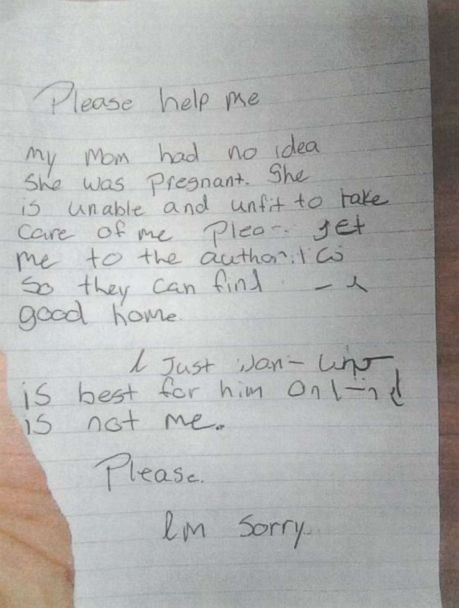 Please help me
my Mom had no idea
She was Pregnant. She
is unable and unfit to take
care of me get
me to the
So they can find
good home
I Just
is best for him
is not me.
Please.
Im Sorry.